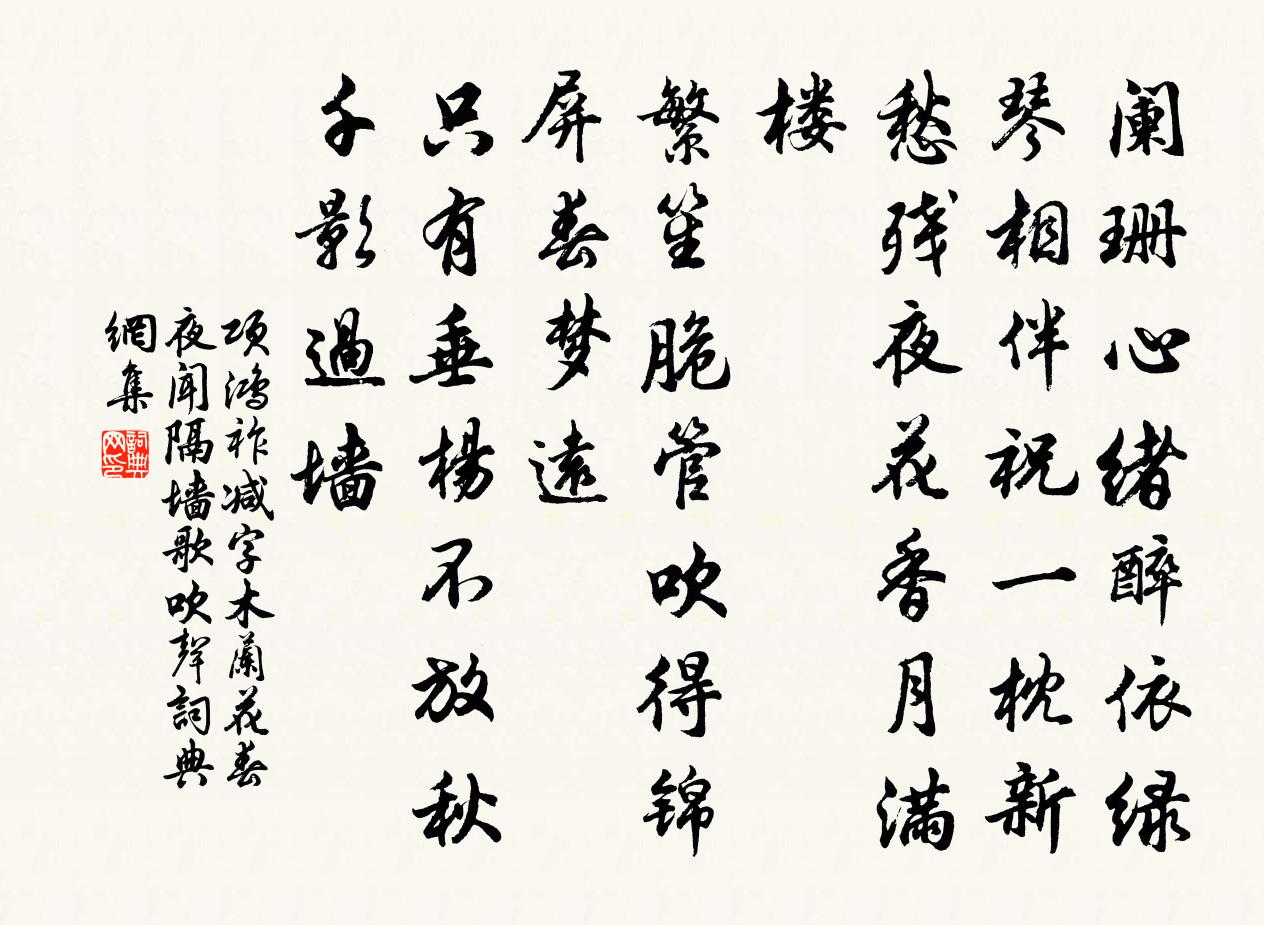 阑珊心绪醉依绿
琴相伴祝一枕新
愁残夜花香月满
楼
繁笙脆管吹得锦
屏春梦遠
只有垂楊不放秋
千影過墙
项鸿祚减字木蘭花春
夜闻隔墙歌吹聲詞典
網集
詞典网印